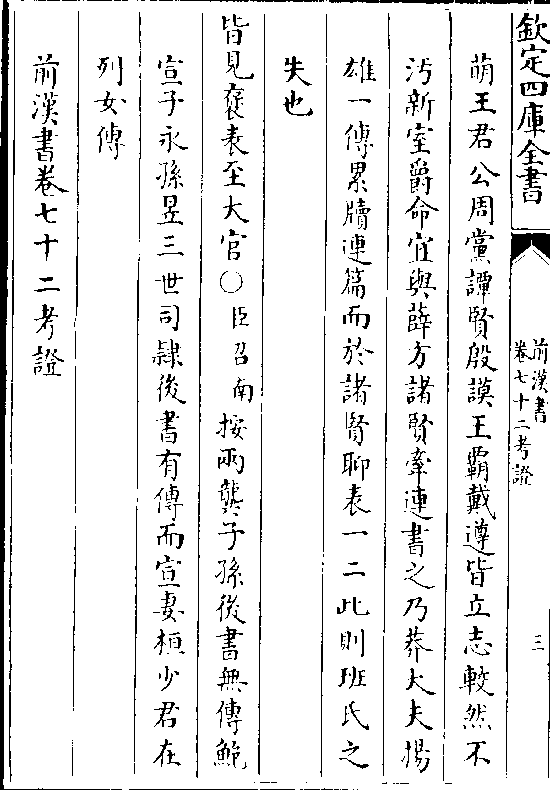 欽定四庫全書
前漢書
卷七十二考證
三
萌王君公周黨譚賢殷謨王霸戴遵皆立志較然不
汚新室爵命宜與薛方諸賢牽連書之乃莽大夫揚
雄一傳累牘連篇而於諸賢聊表一二此則班氏之
失也
皆見褒表至大官〇臣召南按兩龔子孫後書無傳鮑
宣子永孫昱三世司隸後書有傳而宣妻桓少君在
列女傳
前漢書卷七十二考證